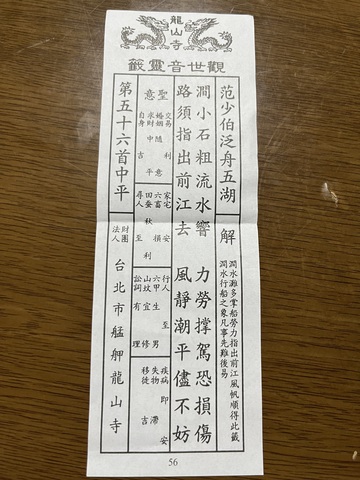 龍山寺
觀世音靈籤
范少伯泛舟五湖
解
澗水灘多掌船勞力指出前江風帆順得此籤
澗水行船之象凡事先難後易
澗小石粗流水響 力勞撐駕恐損傷
路須指出前江去 風靜潮平儘不妨
聖意
交易 利
婚姻 隨意
求財 中平
自身 吉
家宅 安
六畜
田蚕 秋利
尋人 至
行人 至
六甲 生男
山坟 宜修
訟詞 有理
疾病 即安
失物 滯
移徙 吉
第五十六首中平
財團法人 台北市艋舺龍山寺
56